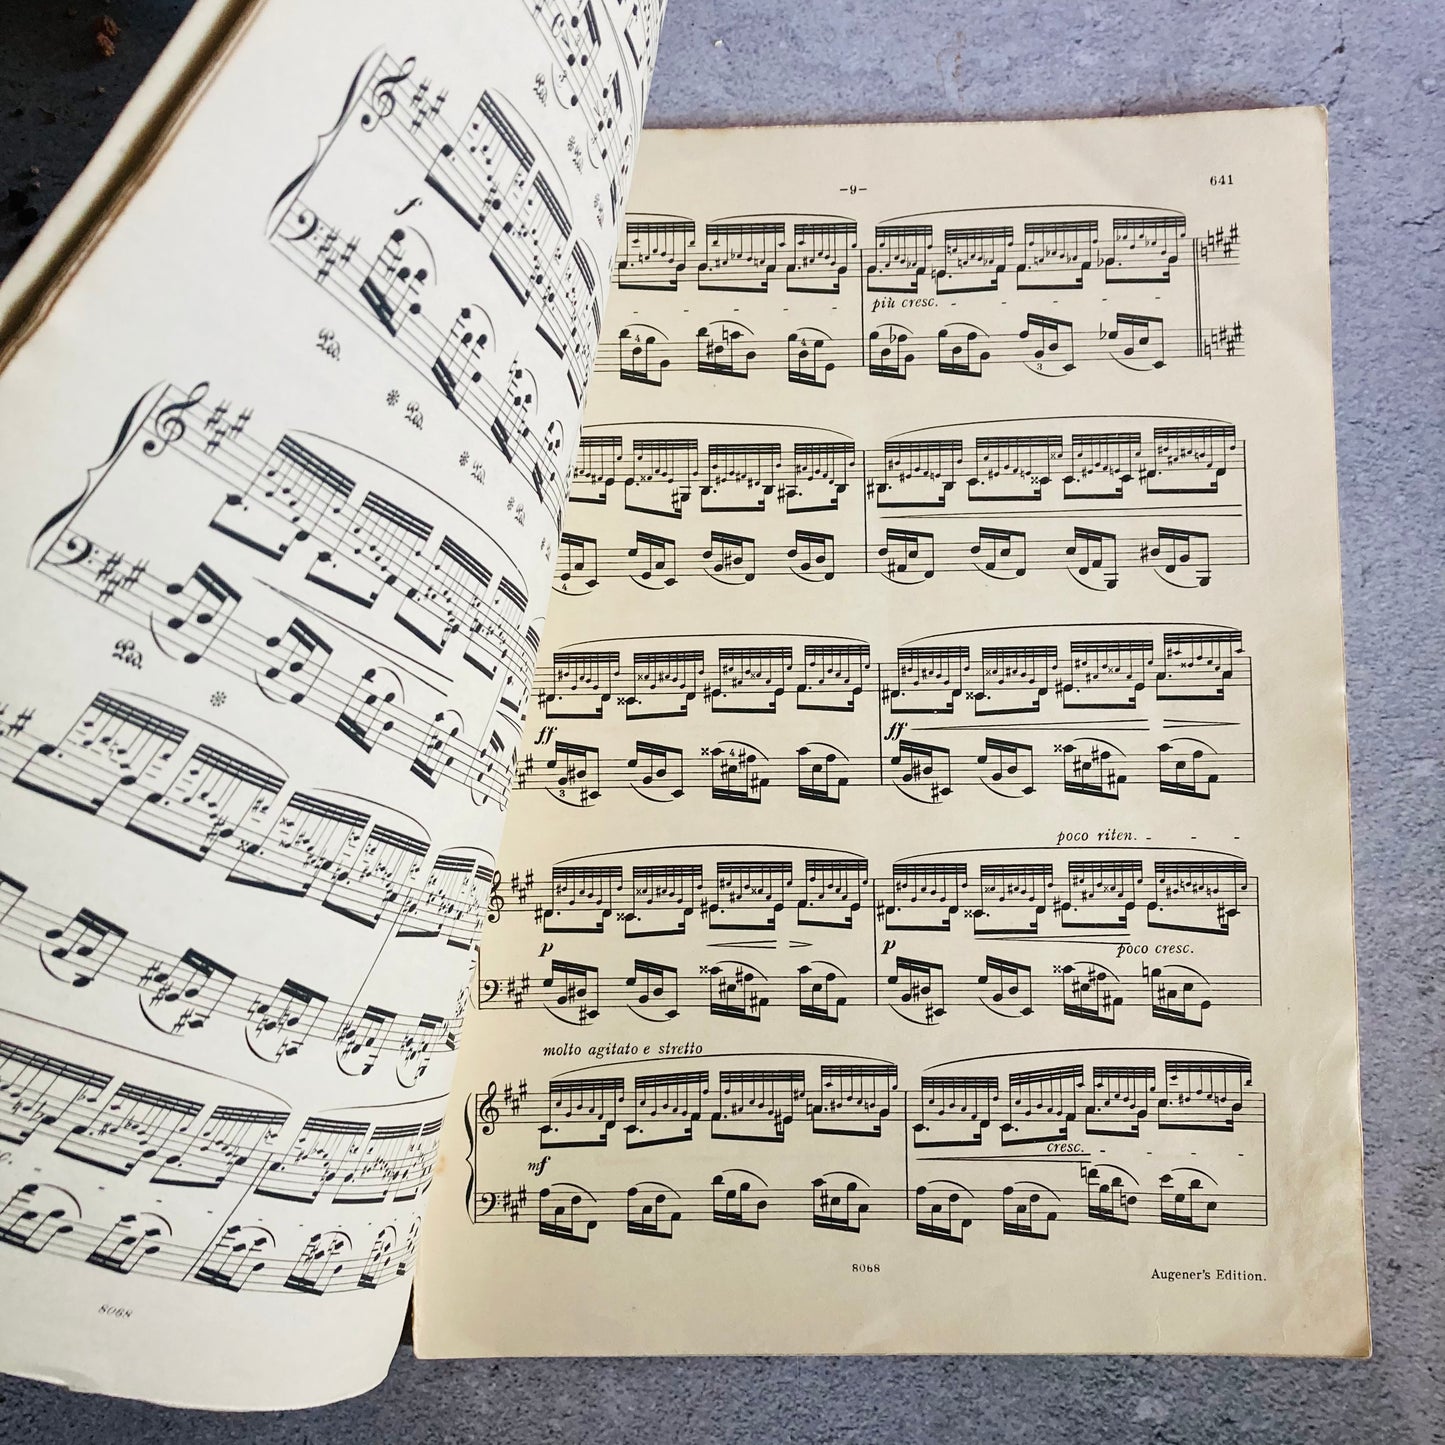 f
Ped.
Ped.
Ped.
Ped.
Ped.
8068
-9-
641
più cresc. - - - -
4
4
3
4
ff
ff
3
4
poco riten. - - -
p
p
poco cresc.
molto agitato e stretto
mf
cresc. - - - -
8068
Augener's Edition.